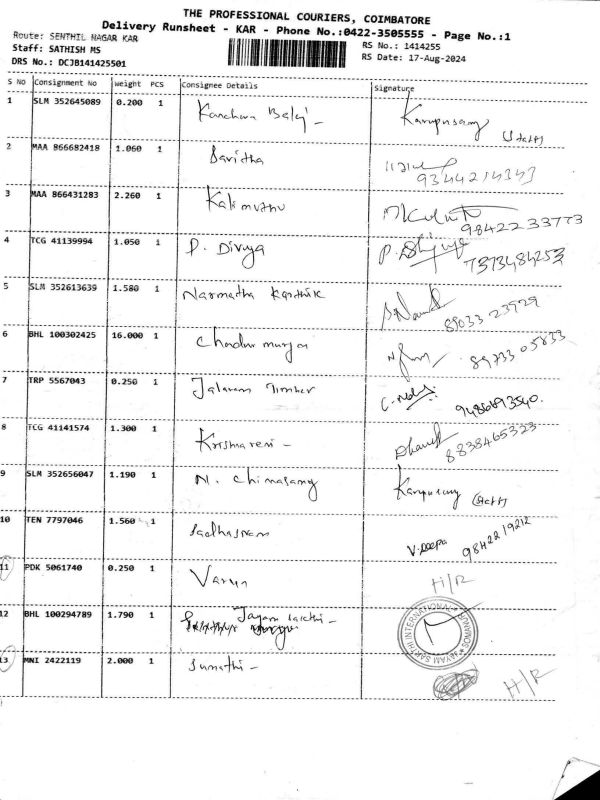 THE PROFESSIONAL COURIERS, COIMBATORE
Delivery Runsheet - KAR - Phone No.:0422-3505555 - Page No.:1
Route: SENTHIL NAGAR KAR
RS No.: 1414255
Staff: SATHISH MS
RS Date: 17-Aug-2024
DRS No.: DCJB141425501
S NO Consignment No weight PCS Consignee Details Signature
1 SLM 352645089 0.200 1 Kanchana Balaji - Karupusamy (Staff)
2 MAA 866682418 1.060 1 Savitha
3 MAA 866431283 2.260 1 Kalimuthu 98422 33773
4 TCG 41139994 1.050 1 P. Divya 7373484253
5 SLM 352613639 1.580 1 Narmatha Karthik 89033 23929
6 BHL 100302425 16.000 1 89733 05833
7 TRP 5567043 0.250 1 Jalaram Timber 9486693540.
8 TCG 41141574 1.300 1 Krishnaveni - 8838465323
9 SLM 352656047 1.190 1 N. Chinasamy Karupusamy (Staff)
10 TEN 7797046 1.560 1 V. Deepa 98422 19212
11 PDK 5061740 0.250 1 Varun H/R
12 BHL 100294789 1.790 1 Jayam sakthi -
13 MNI 2422119 2.000 1 Sumathi - H/R